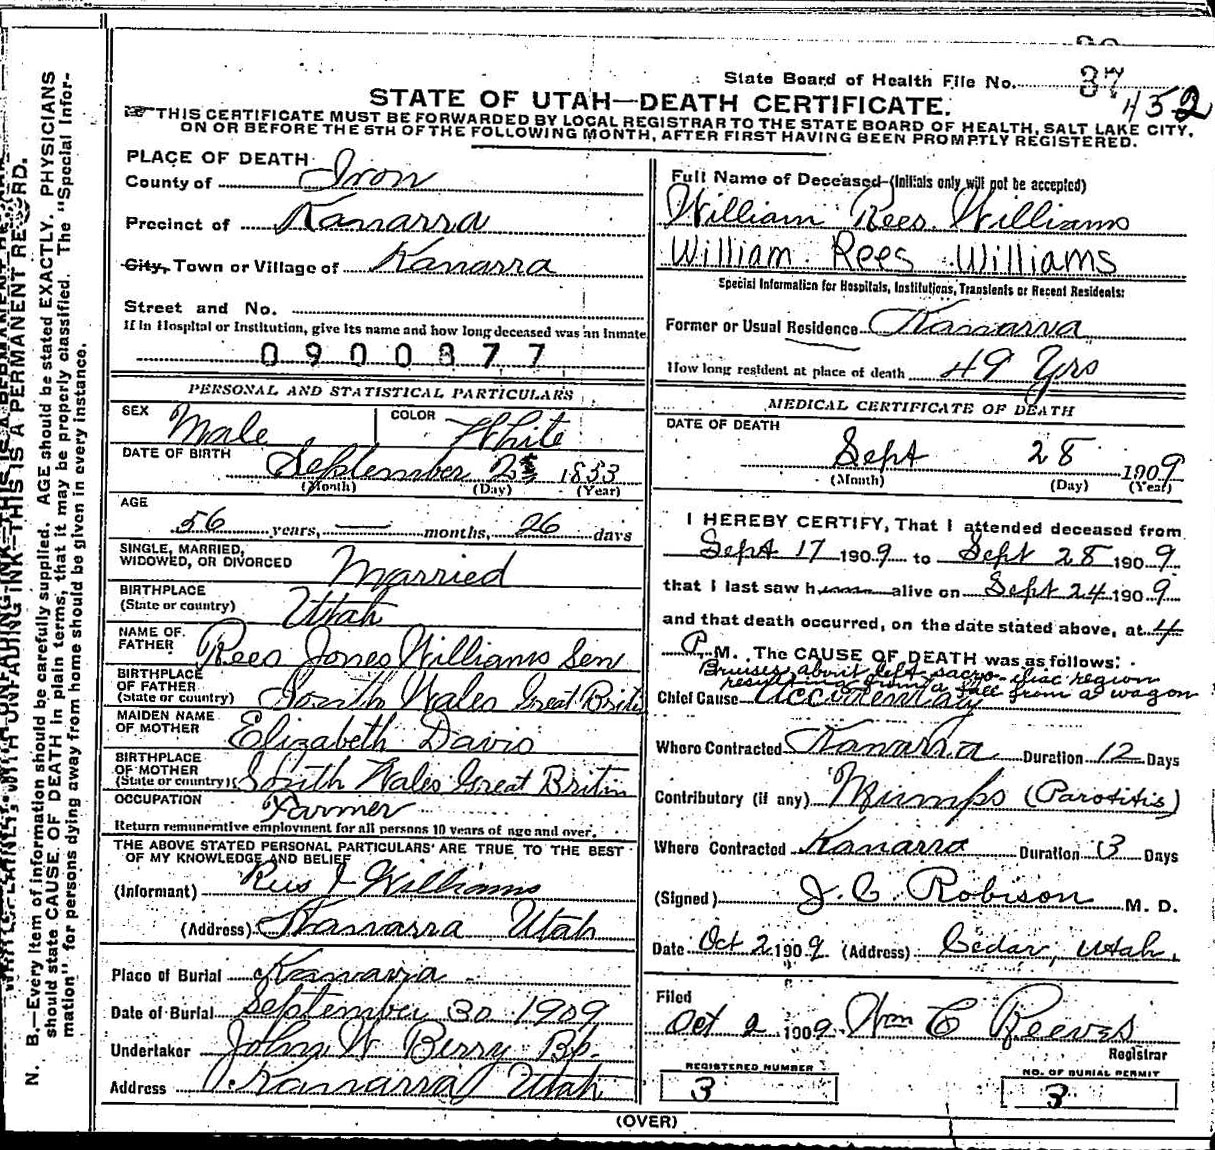 State Board of Health File No. 37
452
STATE OF UTAH—DEATH CERTIFICATE.
THIS CERTIFICATE MUST BE FORWARDED BY LOCAL REGISTRAR TO THE STATE BOARD OF HEALTH, SALT LAKE CITY,
ON OR BEFORE THE 5TH OF THE FOLLOWING MONTH, AFTER FIRST HAVING BEEN PROMPTLY REGISTERED.
PLACE OF DEATH
County of Iron
Precinct of Kanarra
City, Town or Village of Kanarra
Street and No.
If in Hospital or Institution, give its name and how long deceased was an inmate
0900877
PERSONAL AND STATISTICAL PARTICULARS
SEX Male
COLOR White
DATE OF BIRTH
September 2 1853
(Month) (Day) (Year)
AGE
56 years, — months, 26 days
SINGLE, MARRIED,
WIDOWED, OR DIVORCED Married
BIRTHPLACE
(State or country) Utah
NAME OF
FATHER Rees Jones Williams Sen
BIRTHPLACE
OF FATHER
(State or country) South Wales Great Brit
MAIDEN NAME
OF MOTHER Elizabeth Davis
BIRTHPLACE
OF MOTHER
(State or country) South Wales Great Britin
OCCUPATION Farmer
Return remunerative employment for all persons 10 years of age and over.
THE ABOVE STATED PERSONAL PARTICULARS ARE TRUE TO THE BEST
OF MY KNOWLEDGE AND BELIEF
(Informant) Rees J Williams
(Address) Kanarra Utah
Place of Burial Kanarra
Date of Burial September 30 1909
Undertaker John W Berry Bp.
Address Kanarra Utah
Full Name of Deceased (Initials only will not be accepted)
William Rees Williams
William Rees Williams
Special Information for Hospitals, Institutions, Transients or Recent Residents:
Former or Usual Residence Kanarra
How long resident at place of death 49 Yrs
MEDICAL CERTIFICATE OF DEATH
DATE OF DEATH
Sept 28 1909
(Month) (Day) (Year)
I HEREBY CERTIFY, That I attended deceased from
Sept 17 1909 to Sept 28 1909
that I last saw h alive on Sept 24 1909
and that death occurred, on the date stated above, at 4
P. M. The CAUSE OF DEATH was as follows:
Bruises about left sacro-iliac region
resulting from a fall from a wagon
Chief Cause Accidentaly
Where Contracted Kanarra Duration 12 Days
Contributory (if any) Mumps (Parotitis)
Where Contracted Kanarra Duration 3 Days
(Signed) J. C. Robison M. D.
Date Oct 2 1909 (Address) Cedar, Utah.
Filed
Oct 2 1909 Wm C Reeves
Registrar
REGISTERED NUMBER
3
NO. OF BURIAL PERMIT
3
(OVER)
THIS IS A PERMANENT RECORD.
N. B.—Every item of information should be carefully supplied. AGE should be stated EXACTLY. PHYSICIANS
should state CAUSE OF DEATH in plain terms, that it may be properly classified. The "Special Infor-
mation" for persons dying away from home should be given in every instance.